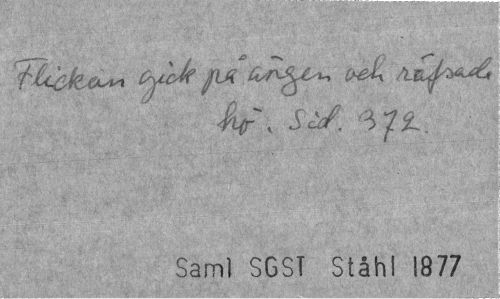 Flickan gick på ängen och räfsade
hö. Sid. 372.
Saml SGST Ståhl 1877